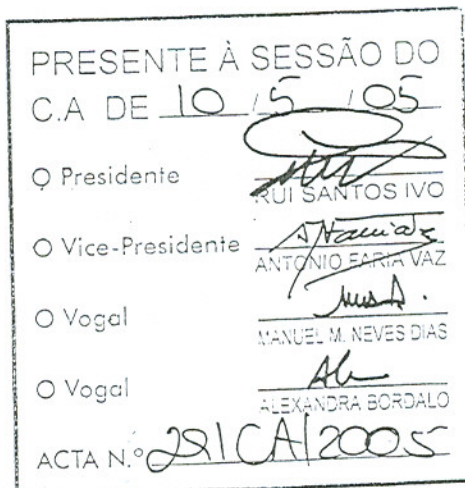 PRESENTE À SESSÃO DO
C.A DE 10 / 5 / 05
O Presidente
RUI SANTOS IVO
O Vice-Presidente
ANTONIO FARIA VAZ
O Vogal
MANUEL M. NEVES DIAS
O Vogal
ALEXANDRA BORDALO
ACTA N.º /CA/2005